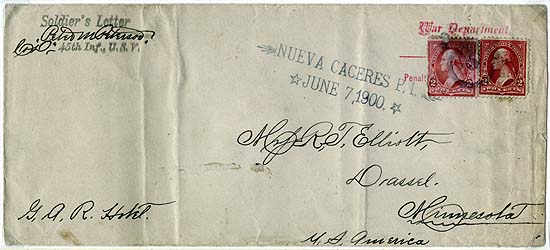 Soldier's Letter
Co. 45th Inf., U. S. V.
War Department,
Penalt
NUEVA CACERES P. I.
JUNE 7, 1900.
2 2
Mrs R. T. Elliott,
Dassel.
Minnesota
G. A. R. Hotel.
U. S. America